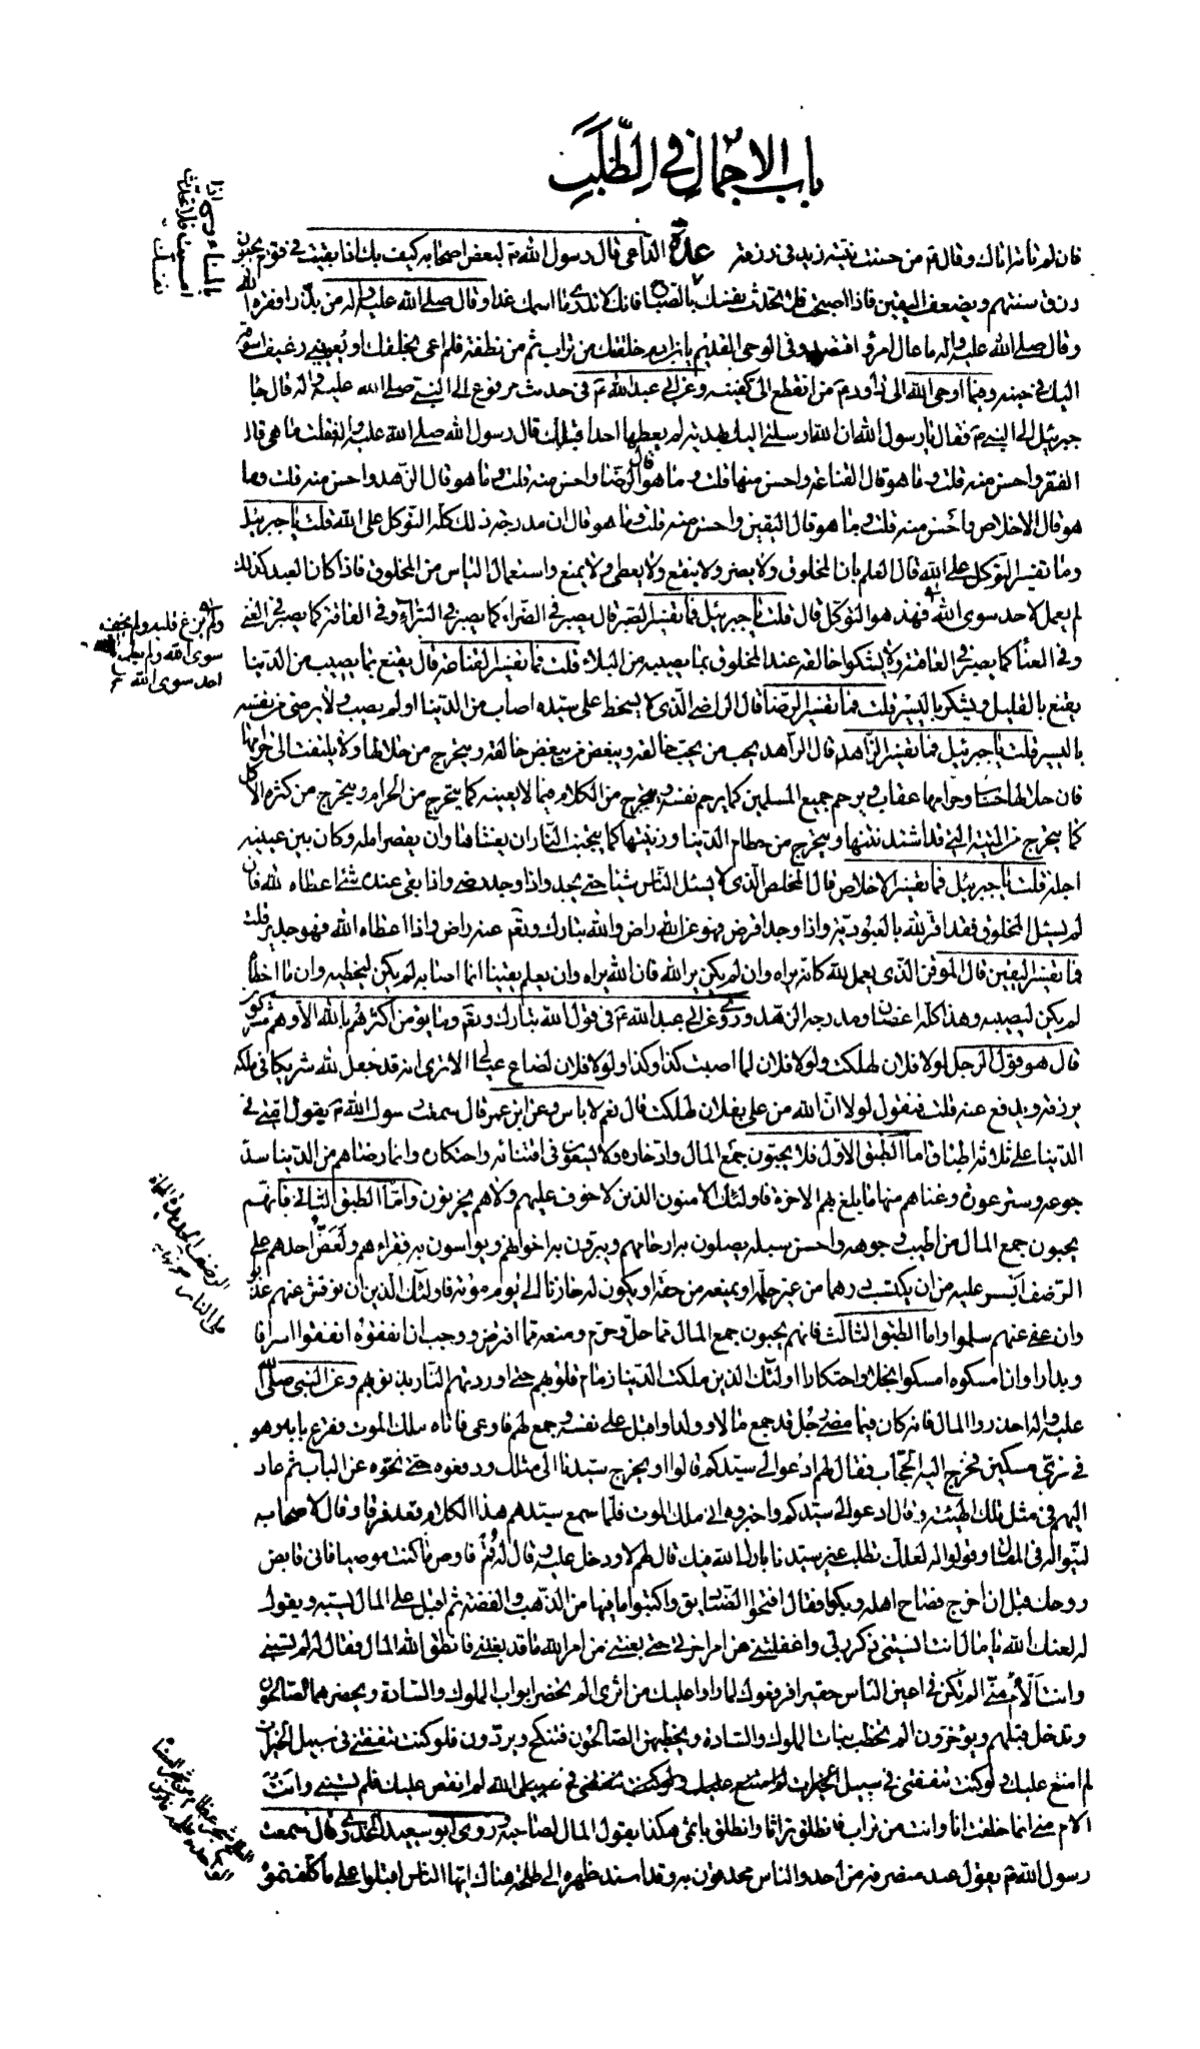 باب الاجمال في الطلب
فان لم تأته اتاك وقال ع من حسنت نيته زيد في رزقه عدة الداعي قال رسول الله ص لبعض اصحابه كيف بك اذا بقيت في قوم يجبون
رزق سنتهم ويضعف اليقين فاذا اصبحت فلا تحدث نفسك بالمساء فانك لا تدري ما اسمك غدا وقال صلى الله عليه واله من بذر افقره الله
وقال صلى الله عليه واله ما عال امرؤ اقتصد وفي الوحي القديم يا بن ادم خلقتك من تراب ثم من نطفة فلم اعي بخلقك او يعييني رغيف اسوقه
اليك في حينه وفيما اوحى الله الى داود ع من انقطع الي كفيته وعن ابي عبد الله ع في حديث مرفوع الى النبي صلى الله عليه واله قال جاء
جبرئيل الى النبي ص فقال يا رسول الله ان الله ارسلني اليك بهدية لم يعطها احدا قبلك قال رسول الله صلى الله عليه واله فقلت ما هي قال
الفقر واحسن منه قلت وما هو قال القناعة واحسن منها قلت وما هو قال الرضا واحسن منه قلت وما هو قال الزهد واحسن منه قلت وما
هو قال الاخلاص واحسن منه قلت وما هو قال اليقين واحسن منه قلت وما هو قال ان مدرجة ذلك كله التوكل على الله قلت يا جبرئيل
وما تفسير التوكل على الله قال العلم بان المخلوق لا يضر ولا ينفع ولا يعطي ولا يمنع واستعمال الناس من المخلوق فاذا كان العبد كذلك
لم يعمل لاحد سوى الله فهذا هو التوكل قال قلت يا جبرئيل فما تفسير الصبر قال يصبر في الضراء كما يصبر في السراء وفي الفاقة كما يصبر في الغنى
وفي العناء كما يصبر في العافية ولا يشكوا خالقه عند المخلوق بما يصيبه من البلاء قلت فما تفسير القناعة قال يقنع بما يصيب من الدنيا
يقنع بالقليل ويشكر باليسير قلت فما تفسير الرضا قال الراضي الذي لا يسخط على سيده اصاب من الدنيا او لم يصب ولا يرضى من نفسه
باليسير قلت يا جبرئيل فما تفسير الزاهد قال الزاهد يحب من يحب خالقه ويبغض من يبغض خالقه ويتحرج من حلالها ولا يلتفت الى حرامها
فان حلالها حساب وحرامها عقاب ويرحم جميع المسلمين كما يرحم نفسه ويتحرج من الكلام فيما لا يعنيه كما يتحرج من الحرام ويتحرج من كثرة الاكل
كما يتحرج من الميتة التي قد اشتد نتنها ويتحرج من حطام الدنيا وزينتها كما يجتنب النار ان يغشاها وان يقصر امله وكان بين عينيه
اجله قلت يا جبرئيل فما تفسير الاخلاص قال المخلص الذي لا يسئل الناس شيئا حتى يجد واذا وجد رضي واذا بقي عنده شئ اعطاه لله فان
لم يسئل المخلوق فقد اقر لله بالعبودية واذا وجد فرضي فهو عن الله راض والله تبارك وتعم عنه راض واذا اعطاه الله فهو جدير قلت
فما تفسير اليقين قال الموقن الذي يعمل لله كانه يراه وان لم يكن يرى الله فان الله يراه وان يعلم يقينا انما اصابه لم يكن ليخطيه وان ما اخطأه
لم يكن ليصيبه وهذا كله اغصان ومدرجة الزهد وروي عن ابي عبد الله ع في قول الله تبارك وتعم وما يؤمن اكثرهم بالله الا وهم مشركون
قال هو قول الرجل لولا فلان لهلكت ولولا فلان لما اصبت كذا وكذا ولولا فلان لضاع عيالي الا ترى انه قد جعل لله شريكا في ملكه
يرزقه ويدفع عنه قلت فنقول لولا ان الله من علي بفلان لهلكت قال نعم لا باس وعن ابن عمر قال سمعت رسول الله ص يقول امتي في
الدنيا على ثلاثة اطباق اما الطبق الاول فلا يحبون جمع المال وادخاره ولا يسعون في اقتنائه واحتكاره وانما رضاهم من الدنيا سد
جوعه وستر عورة وغناهم منها ما بلغ بهم الاخرة فاولئك الامنون الذين لا خوف عليهم ولا هم يحزنون واما الطبق الثاني فانهم
يحبون جمع المال من اطيب وجوهه واحسن سبله يصلون به ارحامهم ويبرون به اخوانهم ويواسون به فقراءهم ولعض احدهم على
الرضف ايسر عليه من ان يكتسب درهما من غير حله او يمنعه من حقه او يكون له خازنا الى يوم موته فاولئك الذين ان نوقش عنهم عذبوا
وان عفي عنهم سلموا واما الطبق الثالث فانهم يحبون جمع المال مما حل وحرم ومنعه مما افترض ووجب ان انفقوه انفقوا اسرافا
وبدارا وان امسكوه امسكوا بخلا واحتكارا اولئك الذين ملكت الدنيا زمام قلوبهم حتى اوردتهم النار بذنوبهم وعن النبي صلى الله
عليه واله احذروا المال فانه كان فيما مضى رجل قد جمع مالا وولدا واقبل على نفسه وجمع لهم فاوعى فاتاه ملك الموت فقرع بابه وهو
في زي مسكين فخرج اليه الحجاب فقال لهم ادعوا لي سيدكم قالوا او يخرج سيدنا الى مثلك ودفعوه حتى نحوه عن الباب ثم عاد
اليهم في مثل تلك الهيئة وقال ادعوا لي سيدكم واخبروه اني ملك الموت فلما سمع سيدهم هذا الكلام قعد فرقا وقال لاصحابه
لينوا له في المقال وقولوا له لعلك تطلب غير سيدنا بارك الله فيك قال لهم لا ودخل عليه وقال له قم فاوص ما كنت موصيا فاني قابض
روحك قبل ان اخرج فصاح اهله وبكوا فقال افتحوا الصناديق واكتبوا ما فيها من الذهب والفضة ثم اقبل على المال يسبه ويقول
له لعنك الله يا مال انت انسيتني ذكر ربي واغفلتني عن امر اخرتي حتى بغتني من امر الله ما قد بغتني فانطق الله المال فقال له لم تسبني
وانت الأم مني الم تكن في اعين الناس حقيرا فرفعوك لما راوا عليك من اثري الم تحضر ابواب الملوك والسادة ويحضرهما الصالحون
وتدخل قبلهم ويؤخرون الم تخطب بنات الملوك والسادة ويخطبهن الصالحون فتنكح ويردون فلو كنت تنفقني في سبيل الخيرات
لم امتنع عليك ولو كنت تنفقني في سبيل الله لم انقص عليك فلم تسبني وانت
الام مني انما خلقت انا وانت من تراب فانطلق تراثا وانطلق باثمي هكذا يقول المال لصاحبه روى ابو سعيد الخدري قال سمعت
رسول الله ص يقول عند منصرفه من احد والناس محدقون به وقد اسند ظهره الى طلحة هناك ايها الناس اقبلوا على ما كلفتموه
بالمساء واذا امسيت فلا تحدث نفسك
ولم يزغ قلبه ولم يخف
سوى الله ولم يطمع الى
احد سوى الله
الرضف الحجارة المحماة
على النار